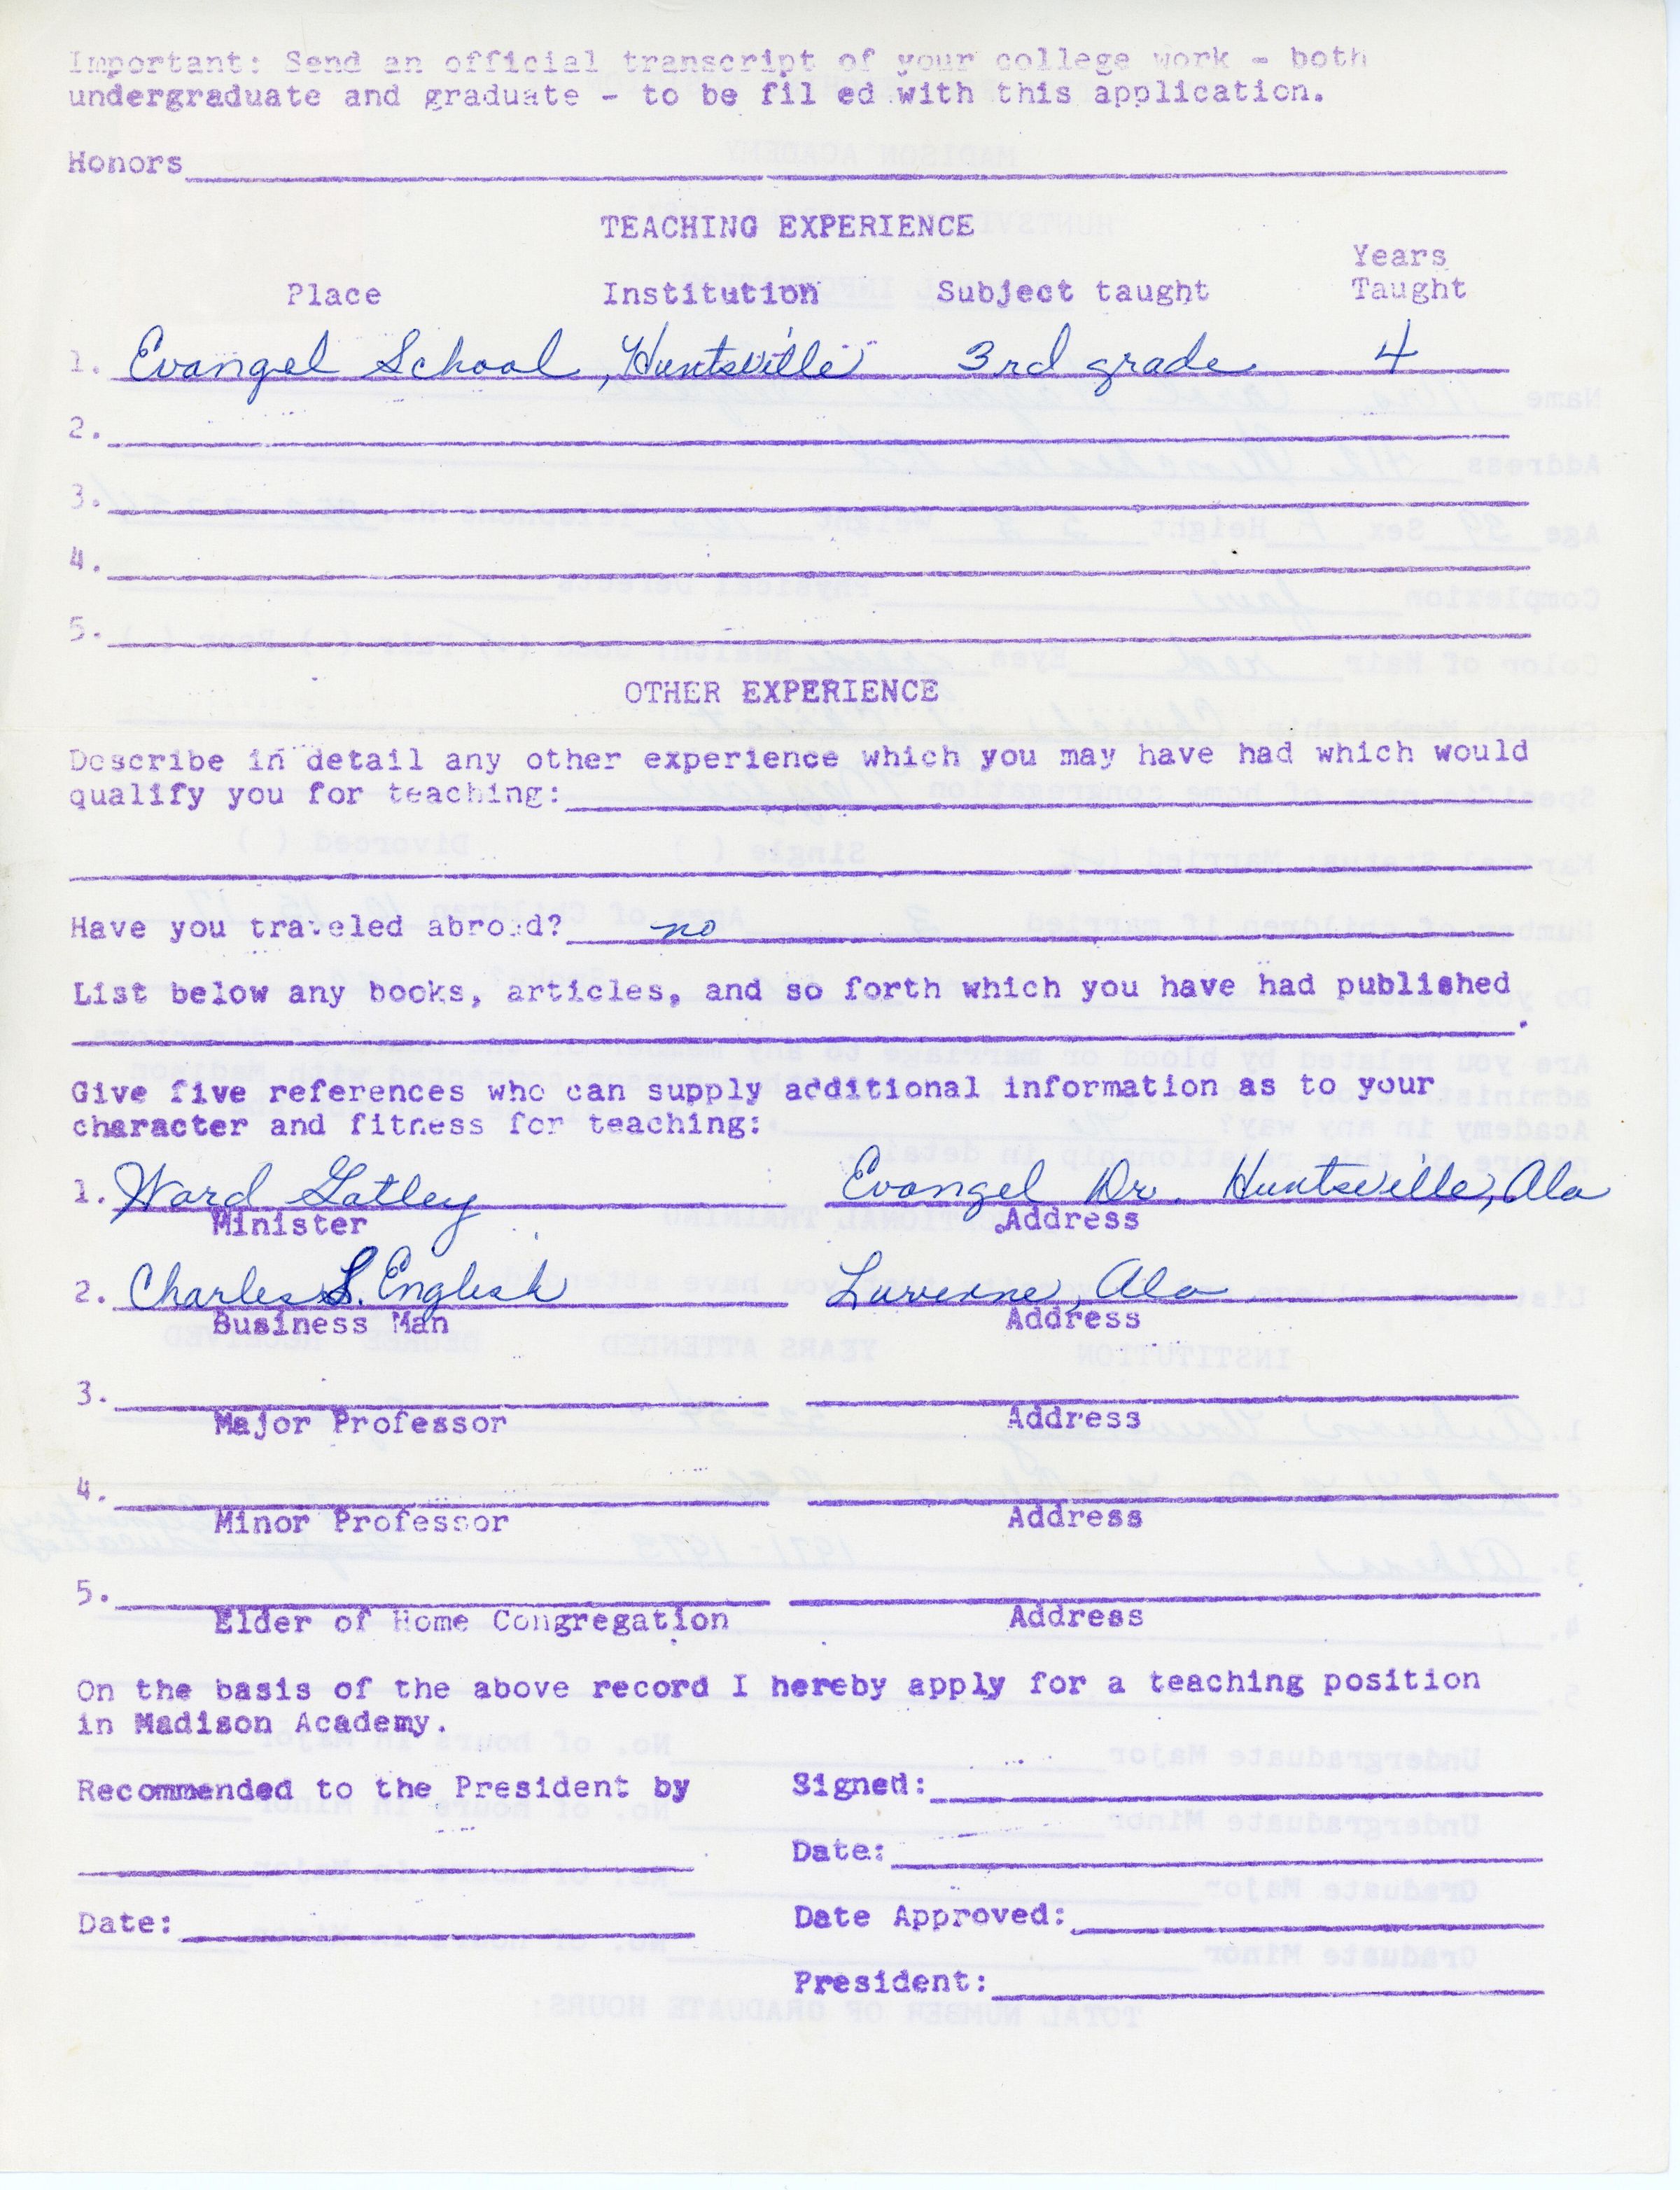 Important: Send an official transcript of your college work - both
undergraduate and graduate - to be fil ed with this application.
Honors
TEACHING EXPERIENCE
Place Institution Subject taught Years Taught
1. Evangel School, Huntsville 3rd grade 4
2.
3.
4.
5.
OTHER EXPERIENCE
Describe in detail any other experience which you may have had which would
qualify you for teaching:
Have you traveled abroad? no
List below any books, articles, and so forth which you have had published
.
Give five references who can supply additional information as to your
character and fitness for teaching:
1. Ward Gatley Evangel Dr. Huntsville, Ala
Minister Address
2. Charles S. English Luverne, Ala
Business Man Address
3.
Major Professor Address
4.
Minor Professor Address
5.
Elder of Home Congregation Address
On the basis of the above record I hereby apply for a teaching position
in Madison Academy.
Recommended to the President by Signed:
Date:
Date: Date Approved:
President: